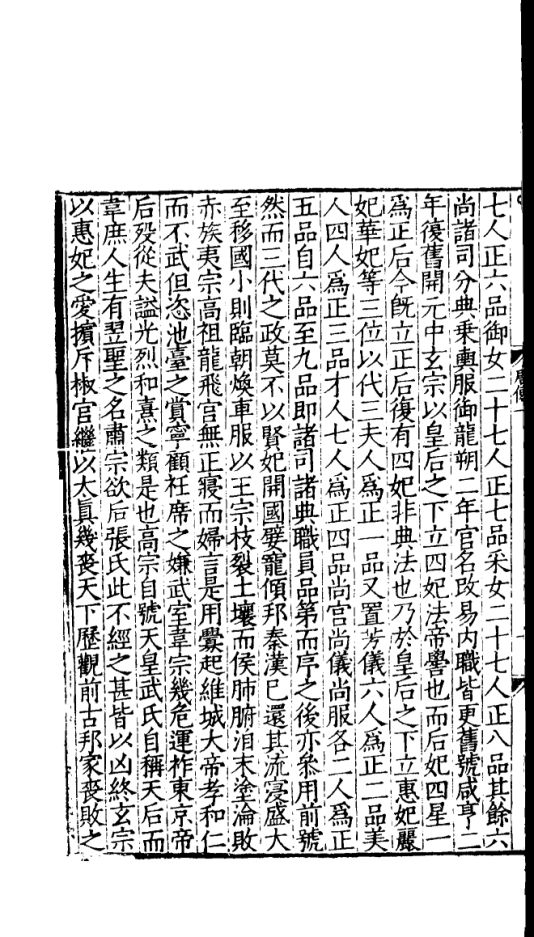 七人正六品御女二十七人正七品采女二十七人正八品其餘六
尚諸司分典乘輿服御龍朔二年官名改易內職皆更舊號咸亨二
年復舊開元中玄宗以皇后之下立四妃法帝嚳也而后妃四星一
爲正后今旣立正后復有四妃非典法也乃於皇后之下立惠妃麗
妃華妃等三位以代三夫人爲正一品又置芳儀六人爲正二品美
人四人爲正三品才人七人爲正四品尚宮尚儀尚服各二人爲正
五品自六品至九品卽諸司諸典職員品第而序之後亦叅用前號
然而三代之政莫不以賢妃開國嬖寵傾邦秦漢已還其流寖盛大
至移國小則臨朝煥車服以王宗枝裂土壤而侯肺腑洎末塗淪敗
赤族夷宗高祖龍飛宮無正寢而婦言是用釁起維城大帝孝和仁
而不武但恣池臺之賞寧顧衽席之嫌武室韋宗幾危運祚東京帝
后歿從夫謚光烈和熹之類是也高宗自號天皇武氏自稱天后而
韋庶人生有翌聖之名肅宗欲后張氏此不經之甚皆以凶終玄宗
以惠妃之愛擯斥椒宮繼以太眞幾喪天下歷觀前古邦家喪敗之
唐傳一